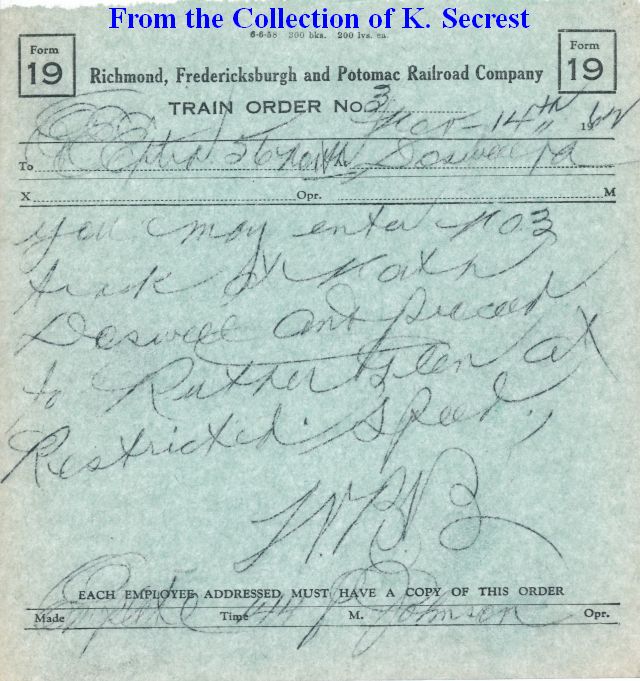 From the Collection of K. Secrest
6-6-58 300 bks. 200 lvs. ea.
Form 19
Form 19
Richmond, Fredericksburgh and Potomac Railroad Company
TRAIN ORDER No. 3
Nov - 14th 1962
To C&E Extra 56 north At Doswell Va
X Opr. M
you may enter No 3
track at North
Doswell and proceed
to Ruther Glen at
Restricted Speed.
W.B.B
EACH EMPLOYEE ADDRESSED MUST HAVE A COPY OF THIS ORDER
Made Complete Time 414 P M. Johnson Opr.